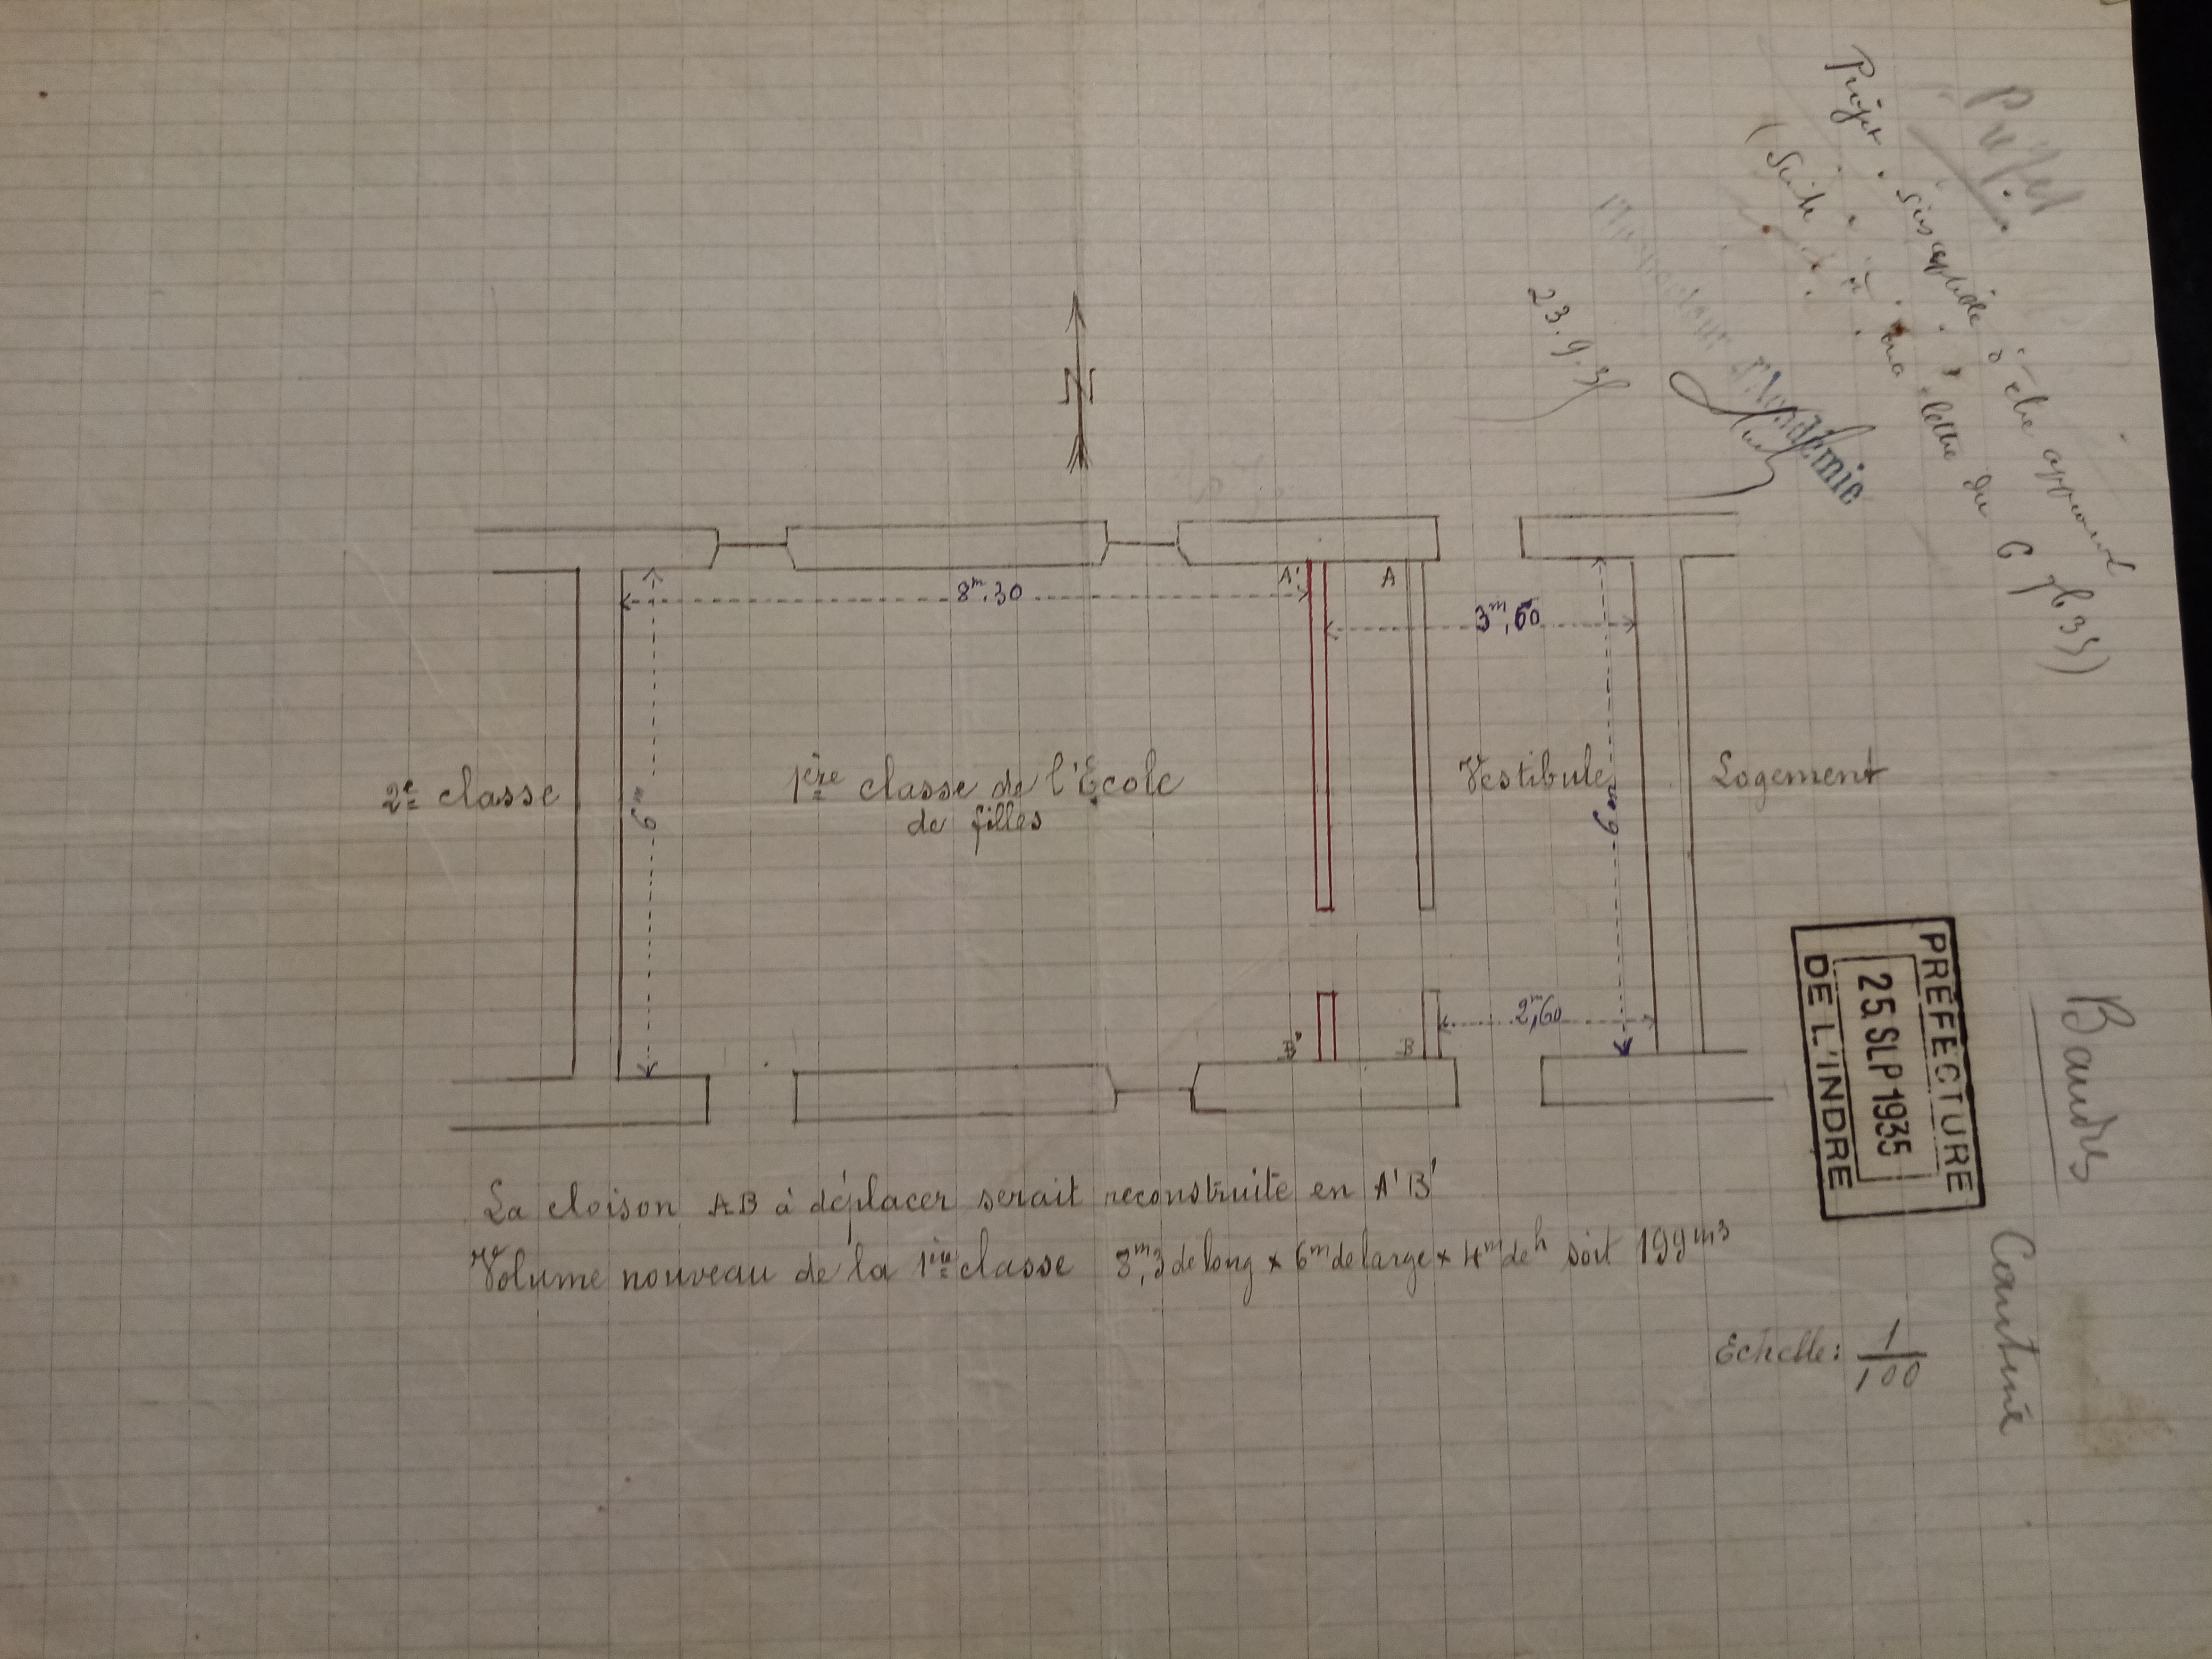 Projet
Projet susceptible d'être approuvé
(Suite à ma lettre du 6 7b 35)
L'Inspecteur d'Académie
23.9.35
N
A'
A
8m,30
3m,60
2e classe
1ère classe de l'École
de filles
Vestibule
Logement
6m
6m
2m,60
B'
B
PREFECTURE
25 SEP 1935
DE L'INDRE
Baudres
Cantine
La cloison AB à déplacer serait reconstruite en A'B'
Volume nouveau de la 1ère classe 8m,3 de long × 6m de large × 4m de h soit 199m3
Echelle: 1/100